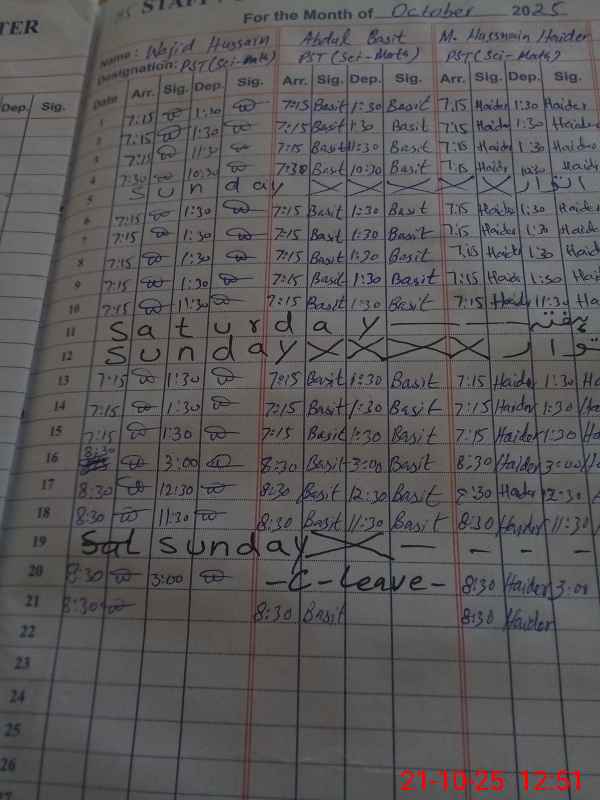 TER
STAFF
For the Month of October 2025
Name: Wajid Hussain Abdul Basit M. Hassnain Haider
Designation: PST(Sci-Math) PST(Sci-Math) PST(Sci-Math)
Dep. Sig. Date Arr. Sig. Dep. Sig. Arr. Sig. Dep. Sig. Arr. Sig. Dep. Sig.
1 7:15 1:30 7:15 Basit 1:30 Basit 7:15 Haider 1:30 Haider
2 7:15 1:30 7:15 Basit 1:30 Basit 7:15 Haider 1:30 Haider
3 7:15 11:30 7:15 Basit 11:30 Basit 7:15 Haider 11:30 Haider
4 7:30 10:30 7:30 Basit 10:30 Basit 7:15 Haider 10:30 Haider
5 Sunday اتوار
6 7:15 1:30 7:15 Basit 1:30 Basit 7:15 Haider 1:30 Haider
7 7:15 1:30 7:15 Basit 1:30 Basit 7:15 Haider 1:30 Haider
8 7:15 1:30 7:15 Basit 1:30 Basit 7:15 Haider 1:30 Haider
9 7:15 1:30 7:15 Basit 1:30 Basit 7:15 Haider 1:30 Haid
10 7:15 11:30 7:15 Basit 1:30 Basit 7:15 Haider 11:30 Ha
11 Saturday ہفتہ
12 Sunday توار
13 7:15 1:30 7:15 Basit 1:30 Basit 7:15 Haider 1:30 Ha
14 7:15 1:30 7:15 Basit 1:30 Basit 7:15 Haider 1:30 Ha
15 7:15 1:30 7:15 Basit 1:30 Basit 7:15 Haider 1:30 Ha
16 8:30 3:00 8:30 Basit 3:00 Basit 8:30 Haider 3:00 Ha
17 8:30 12:30 8:30 Basit 12:30 Basit 8:30 Haider 12:30
18 8:30 11:30 8:30 Basit 11:30 Basit 8:30 Haider 11:30
19 Sat Sunday — - - - -
20 8:30 3:00 -C-Leave- 8:30 Haider 3:00
21 8:30 8:30 Basit 8:30 Haider
22
23
24
25
26
27
21-10-25 12:51